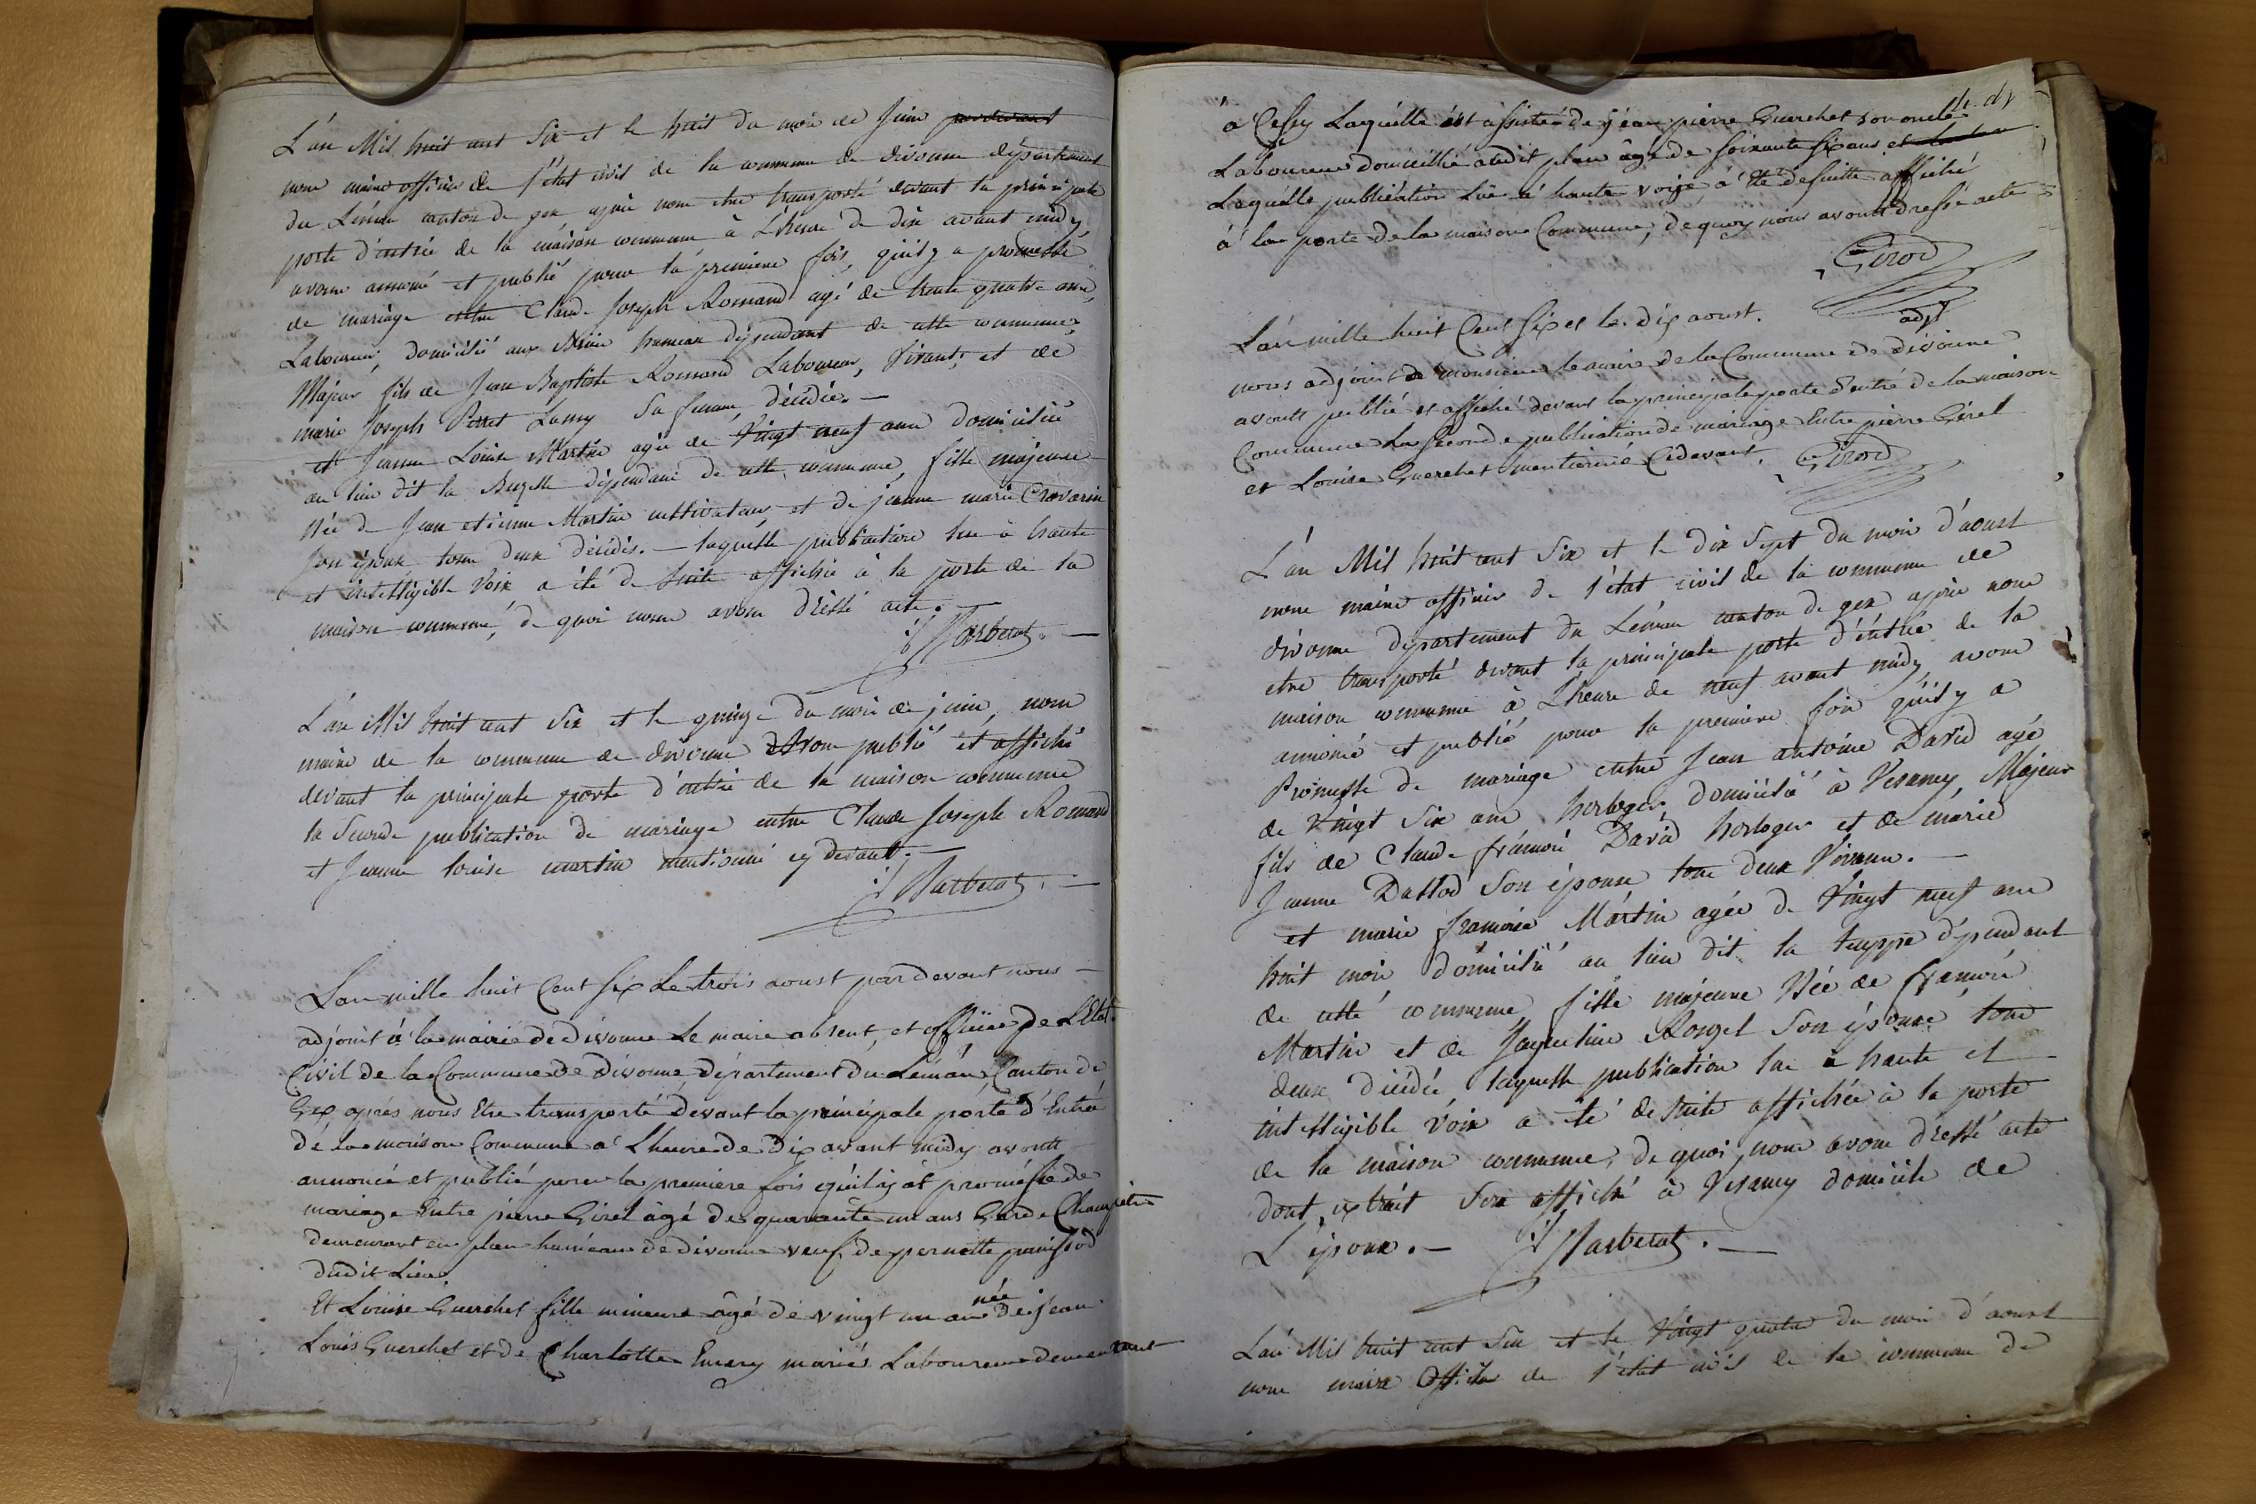 L'an Mil huit cent Six et le huit du mois de Juin pardevant
nous maire officier de l'état civil de la commune de divonne département
du Léman canton de gex après nous être transporté devant la principale
porte d'entrée de la maison commune à L'heure de dix avant midy
avons annoncé et publié pour la première fois, qu'il y a promesse
de mariage entre Claude Joseph Romand agé de trente quatre ans,
Laboureur, domicilié aux hameau dépendant de cette commune,
Majeur fils de Jean Baptiste Romand Laboureur, Vivant, et de
marie Joseph Perret Lamy Sa femme décédée. —
et Jeanne Louise Martin agée de Vingt neuf ans domiciliée
au lieu dit la dépendant de cette commune, fille majeure
Née de Jean etienne Martin cultivateur et de jeanne marie Cravarin
Son épouse tous deux décédés. — laquelle publication lue à haute
et intelligible Voix a été de Suite affichée à la porte de la
maison commune, de quoi nous avons dressé acte.
Barberat. —
L'an Mil huit cent Six et le quinze du mois de juin, nous
maire de la commune de divonne avons publié et affiché
devant la principale porte d'entrée de la maison commune
la Seconde publication de mariage entre Claude Joseph Romand
et Jeanne louise martin mentionné cy devant. —
Barberat. —
L'an mille huit Cent six Le trois aoust par devant nous —
adjoint à la mairie de divonne Le maire absent, et officier de L'Etat
Civil de la Commune de Divonne, département du Léman, Canton de
Gex après nous Etre transporté devant la principale porte d'Entrée
de la maison Commune a L'heure de Dix avant midy avons
annoncé et publié pour la première fois qu'il y at promesse de
mariage Entre pierre Girel âgé de quarante un ans Garde Champêtre
demeurant en plan hameau de divonne veuf de pernette panissod
dudit Lieu
Et Louise Guerchet fille mineure âgé de vingt un an née de jean
Louis Guerchet et de Charlotte Emery mariés Laboureurs demeurant
à Cessy Laquelle est assistée de jean pierre Guerchet son oncle
Laboureur domicillié audit plan âgé de soixante six ans et
Laquelle publication Lue à haute voix a été de suitte affiché
à la porte de la maison Commune, de quoy nous avons dressé acte
Girod
adjt
L'an mille huit Cent six et le dix aoust.
nous adjoint de monsieur le maire de la Commune de divonne
avons publié et affiché devant la principale porte d'entré de la maison
Commune La seconde publication de mariage Entre pierre Girel
et Louise Guerchet mentionné Cidevant. Girod
L'an Mil huit cent Six et le dix Sept du mois d'aoust
nous maire officier de l'état civil de la commune de
divonne département du Léman canton de gex après nous
etre transporté devant la principale porte d'entrée de la
maison commune à L'heure de neuf avant midy, avons
annoncé et publié pour la première fois qu'il y a
Promesse de mariage entre Jean antoine David agé
de Vingt Six ans horloger domicilié à Vesancy, Majeur
fils de Claude françois David horloger et de marie
Jeanne Dallod Son épouse tous deux Vivans. —
et marie françoise Martin agée de Vingt neuf ans
huit mois domicilié au lieu dit la teuppe dépendant
de cette commune, fille majeure Née de françois
Martin et de Jaqueline Rouget Son épouse tous
deux décédés laquelle publication lue à haute et
intelligible Voix a été de Suite affichée à la porte
de la maison commune, de quoi nous avons dressé acte
dont extrait Sera affiché à Vesancy domicile de
L'époux. — Barberat. —
L'an Mil huit cent Six et le Vingt quatre du mois d'aoust
nous maire officier de l'état civil de la commune de